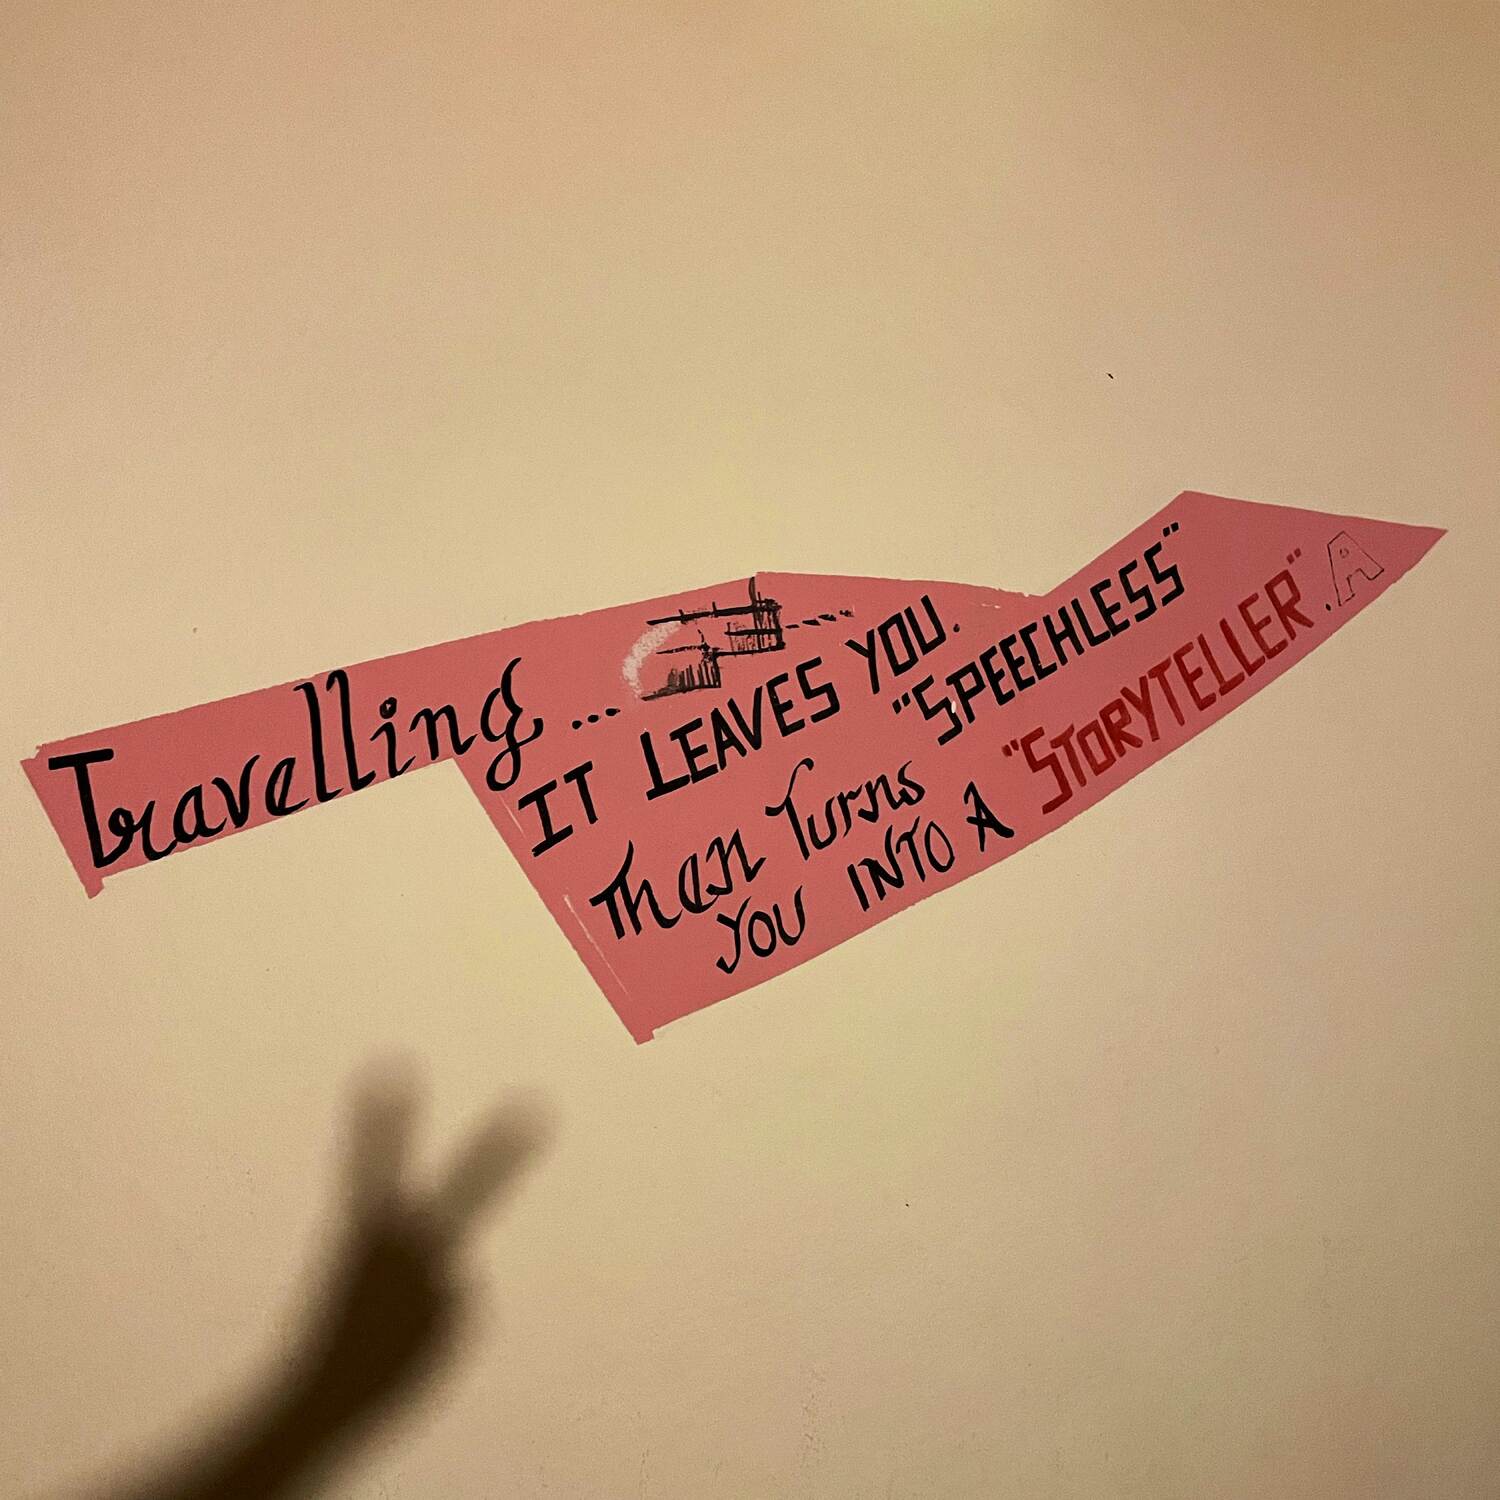 Travelling...
IT LEAVES YOU.
"SPEECHLESS"
Then Turns
YOU INTO A "STORYTELLER". A